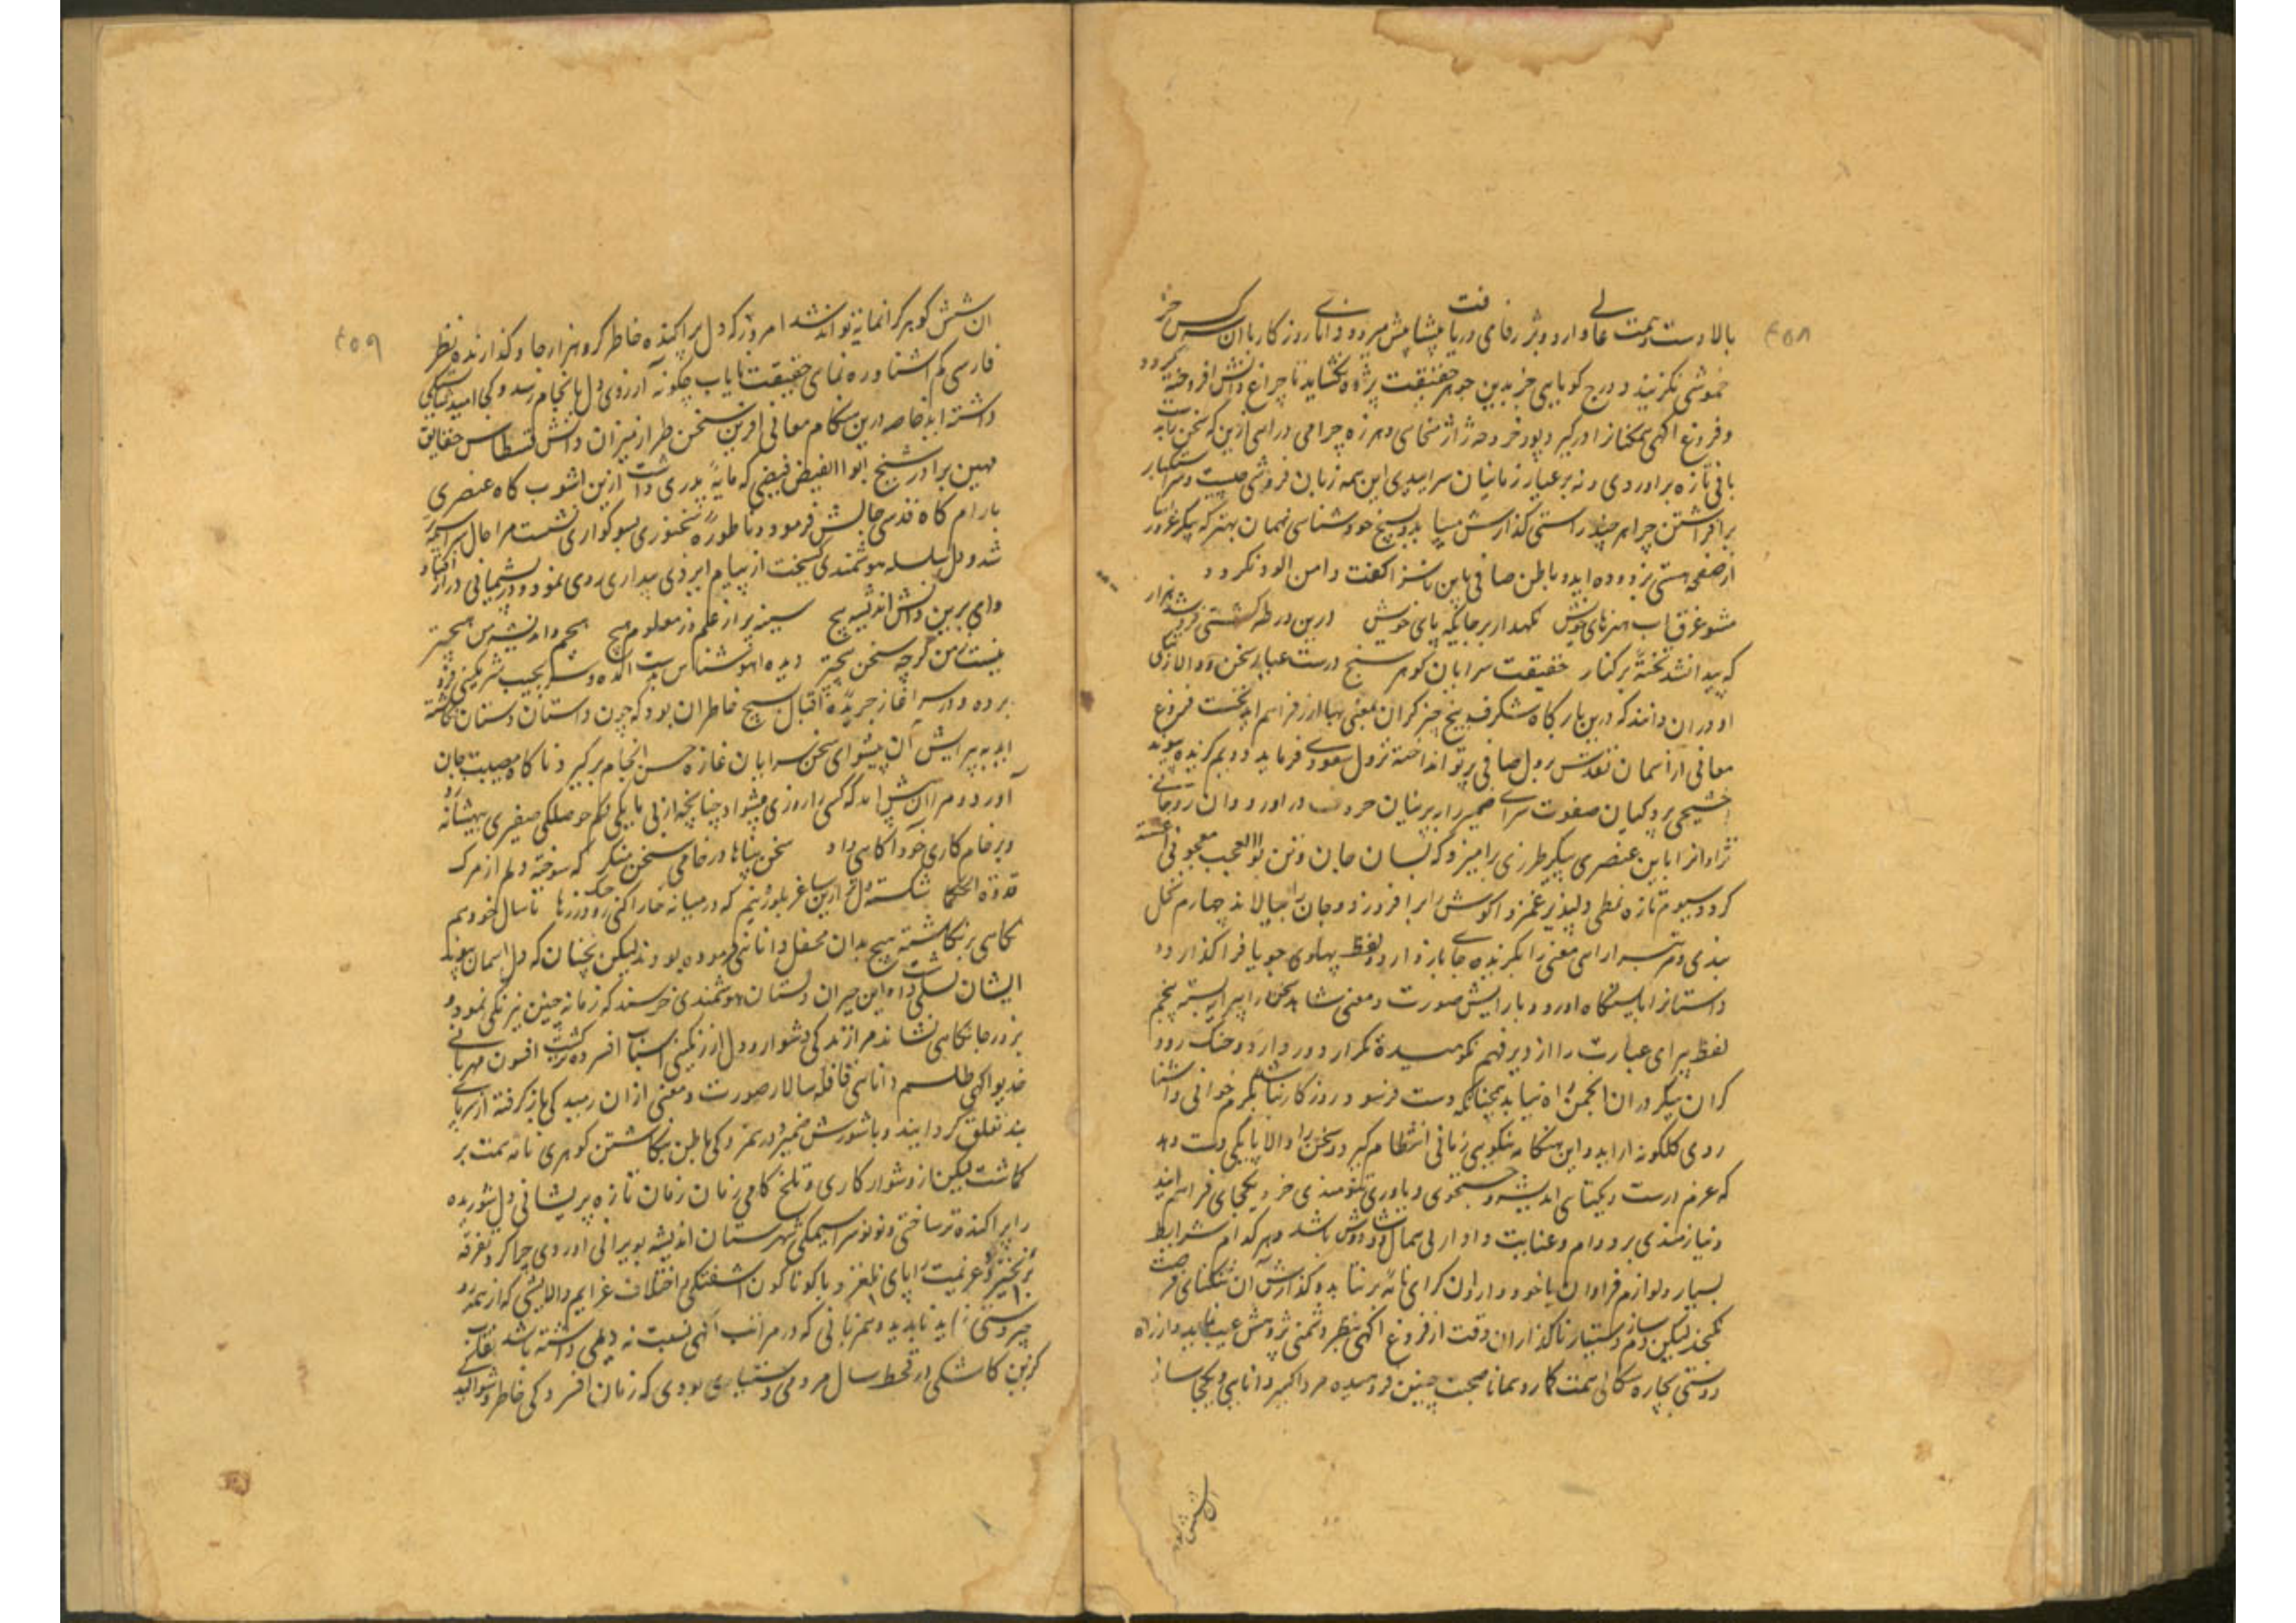 ۴۵۸
بالا دست همت عالی دارد و ژرفای دریافت پیشاپیش میرود و دانای روزگار با آن سر کس جز
خموشی نگزیند و درج گویایی جز بدین جوهر حقیقت پژوه نگشاید تا چراغ دانش افروخته گردد
و فروغ آگهی همگنان را درگیرد پور خرد ژاژخایی و هرزه چرا می درای ازین که سخن پایه
یافتی تازه برآوردی و نه بر عیار زمانیان سراییدی این همه زبان فروشی چیست و سر استکبار
برافراشتن چرا هر چند راستی گذارش مییابد و پاسخ خودشناسی نهان بهتر که پیکر غرور
از صفحه هستی بزدوده اید و باطن صافی باین ناسزا گفت دامن آلود نگردد
مشو غرق آب هنرهای خویش نگهدار بر جایگه پای خویش درین ورطه کشتی فرو شد هزار
که پیدا نشد تخته بر کنار حقیقت سرایان گوهر سنج درست عیاری سخن و والانگی
او در آن دانند که درین بارگاه شگرف پنج چیز گران معنی بهاارز فراهم آید نخست فروغ
معانی از آسمان تقدس بر دل صافی پرتو انداخته نزول سعودی فرماید دویم گزیده پیوند
بخشیجی پردگیان صفوت سرای ضمیر را بر پرنیان حروف درآورد و آن روحانی
نژادان را با این عنصری پیکر طرزی برآمیزد که بسان جان و تن بوالعجب معجونی آغشته
گردد سیوم تازه نمطی دلپذیر غمزدا گوش را برافروزد و جان را ببالاند چهارم نخل
بندی و مرتبه آرای معنی را بگزیده جای باز دارد و لفظ پهلوی جویا فرا گذارد و
داستان را بایستگاه آورد و بآرایش صورت و معنی شاهد سخن را پیرایه بندد پنجم
لفظ پیرای عبارت را از دیر فهم نکوهیده تکرار دور دارد و خنک رود
گران پیکر در آن انجمن راه نیابد همچنانکه دست فرسود روزگار نباشد بگرم خوانی و آشنا
روی گلگونه آراید و این هنگامه بنکویی زمانی انتظام گیرد و سخن را والا پایگی دست دهد
که عزم درست و یکتای اندیشه و جستجوی و یاوری تنومندی خرد یکجای فراهم آیند
و نیازمندی بر دوام و عنایت دادار بی همال دوش بادوش باشد و هر که ام شرایط
بسیار و لوازم فراوان یا خود دارد از آن گرای نامه برنتابد و گذارش آن تنگنای فرصت
نگنجد لیکن دم سازدستیار ناگذاران وقت از فروغ آگهی منظر و تمنی پژوهش عیب نماید و از راه
دوستی بچاره سگالی همت گمارد همانا صحبت چنین فروهیده مرد اکسیر دانایی و یکجا ساز
آن شش گوهر
۴۵۹
آن شش گوهر گرانمایه تواند شد امروز که دل پراکنده خاطر گرو هزار جا و گذارنده نظر
فارسی کم آشنا و ره نمای حقیقت نایاب چگونه آرزوی دل بانجام رسد و کی امید شایستگی
داشته آید خاصه درین هنگام معانی آفرین سخن طراز میزان دانش قسطاس حقایق
مهین برادر شیخ ابوالفیض فیضی که پایه پدری داشت ازین آشوب گاه عنصری
بآرام گاه قدسی چالش فرمود و ناطوره سخنوری بسوگواری نشست مرا حال سراسیمه
شد و دل سلسله هوشمندی گسیخت از پیام ایزدی بیداری روی نمود و در پشیمانی دراز افتاد
وای برین دانش اندیشه هیچ سینه پر از علم و ز معلوم هیچ هیچم و اندیشه من هیچتر
نیست ز من گرچه سخن هیچتر دیده آهو شناس بدست آمده و سر بجیب شرمگینی فرو
برده و در سر آغاز جریده اقبال بسیج خاطر آن بود که چون داستان داستان نگاشته
آید بپیرایش آن پیشوای سخن سرایان غازه حسن انجام برگیرد ناگاه مصیبت جان
آورد و مرا آن پیش آمد که کسی را روزی مشواد چنانچه از بی پایگی و کم حوصلگی صفیری بهیشانه زد
و بر خام کاری خود آگاهی داد سخن پناها در خامی سخن منگر که سوخته دلم از مرگ
قدوة الحکما شکسته دل تر از آن ساغر بلورینم که در میانه خارا کنی ز دست رها تا سال خود هم
نگاهی بر نگاشته هیچ بدان محفل دانای فرموده بودند لیکن نچنان که دل آسمان پیوند
ایشان تسلی داشت و این حیران دبستان هوشمندی خرسند که زمانه چنین نیرنگی نمود و
بزور جانکاهی نشاند مرا زندگی دشوار و دل از رنگینی اسباب افسرده گشت افسون مهربانی
خدیو آگهی طلسم دانائی قافله سالار صورت و معنی از آن رمیدگی بازگرفته از سر پای
بند تعلق گردانید و با شورش ضمیر و درهمزدگی باطن بنگاشتن گوهری نامه همت بر
گماشت لیکن از دشوار کاری و تلخ کامی زمان زمان تازه پریشانی دل شوریده
را پراکنده‌تر ساختی و نونو سراسیمگی شهرستان اندیشه بویرانی آوردی چه کرد تفرقه
برخیزد و عزیمت را پای بلغزد و با گوناگون آشفتگی اختلاف عزایم و الایشی که از همه رو
چیره دستی نماید ناپدید و همزبانی که در مراتب آگهی نسبت به دیلمی داشته باشد نقاب
گزین کاشکی در قحط سال مردمی دستیاری بودی که زمان افسردگی خاطر و شوالید